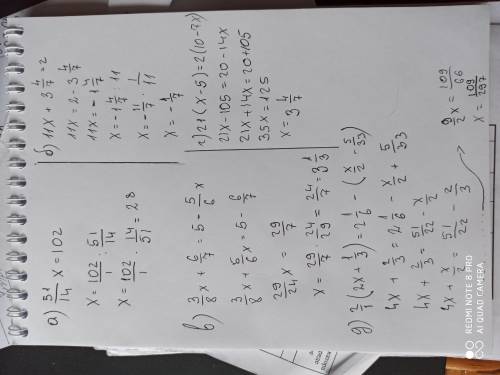 а) 51/14 x = 102
x = 102/1 : 51/14
x = 102/1 · 14/51 = 28
б) 11x + 3 4/7 = 2
11x = 2 - 3 4/7
11x = -1 4/7
x = -1 4/7 : 11
x = -11/7 · 1/11
x = -1/7
в) 3/8 x + 6/7 = 5 - 5/6 x
3/8 x + 5/6 x = 5 - 6/7
29/24 x = 29/7
x = 29/7 : 29/24 = 24/7 = 3 1/3
г) 21(x-5) = 2(10-7x)
21x - 105 = 20 - 14x
21x + 14x = 20 + 105
35x = 125
x = 3 4/7
д) 2/1 (2x + 1/3) = 2 1/6 - (x/2 - 5/33)
4x + 2/3 = 2 1/6 - x/2 + 5/33
4x + 2/3 = 51/22 - x/2
4x + x/2 = 51/22 - 2/3
9/2 x = 109/66
x = 109/297
REDMI NOTE 8
AI QUAD CAMERA